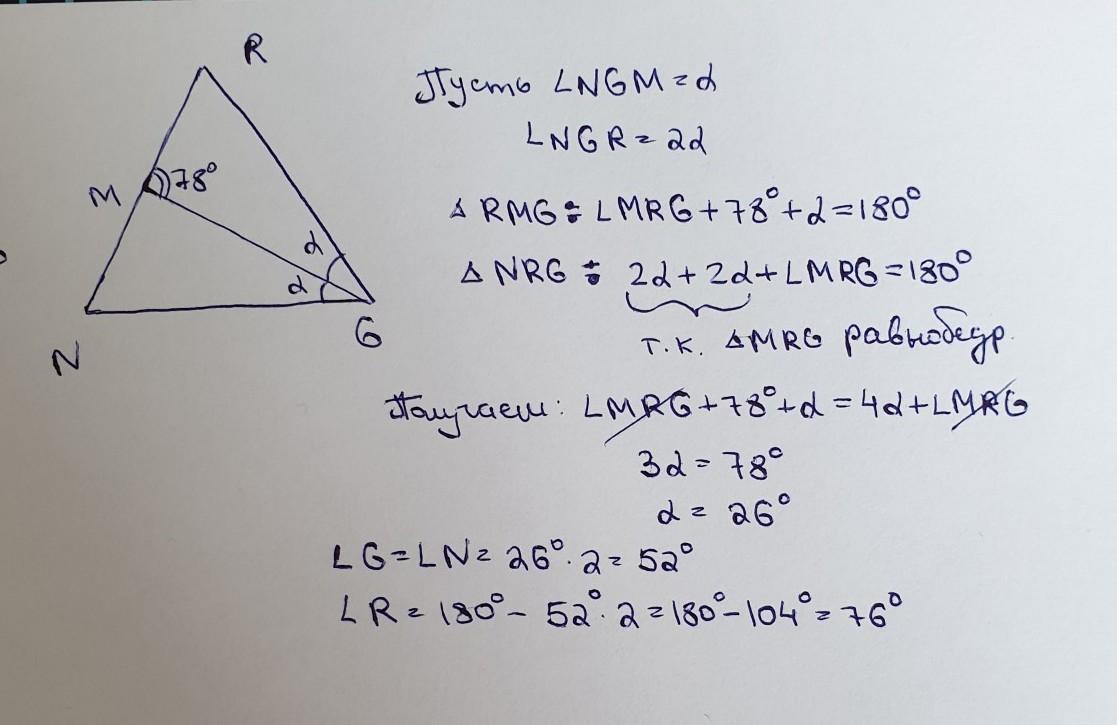 R
M
78°
α
α
N
G
Пусть ∠NGM = α
∠NGR = 2α
△ RMG : ∠MRG + 78° + α = 180°
△ NRG : 2α + 2α + ∠MRG = 180°
т.к. △MRG равнобедр.
Получаем: ∠MRG + 78° + α = 4α + ∠MRG
3α = 78°
α = 26°
∠G = ∠N = 26° · 2 = 52°
∠R = 180° - 52° · 2 = 180° - 104° = 76°